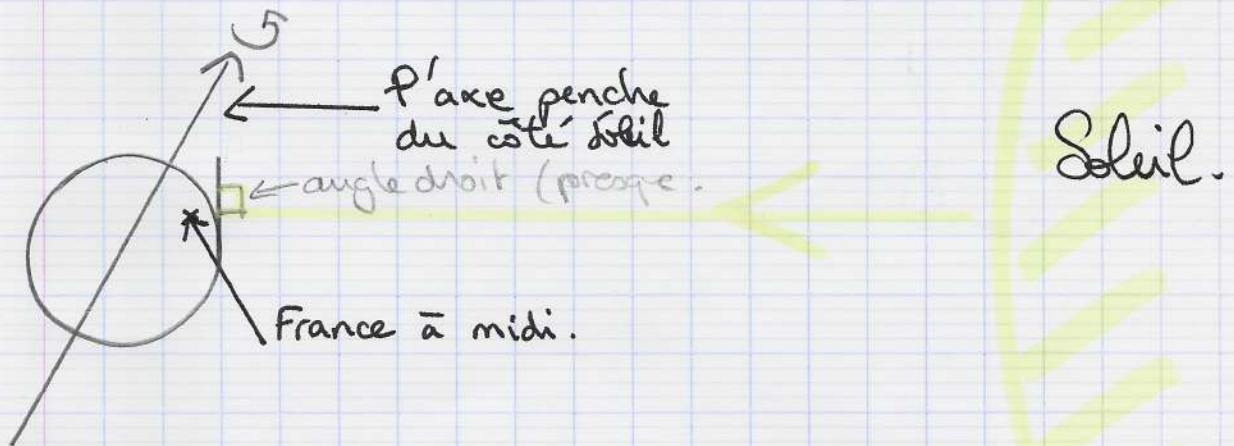 l'axe penche
du côté soleil
angle droit (presque.
Soleil.
France à midi.